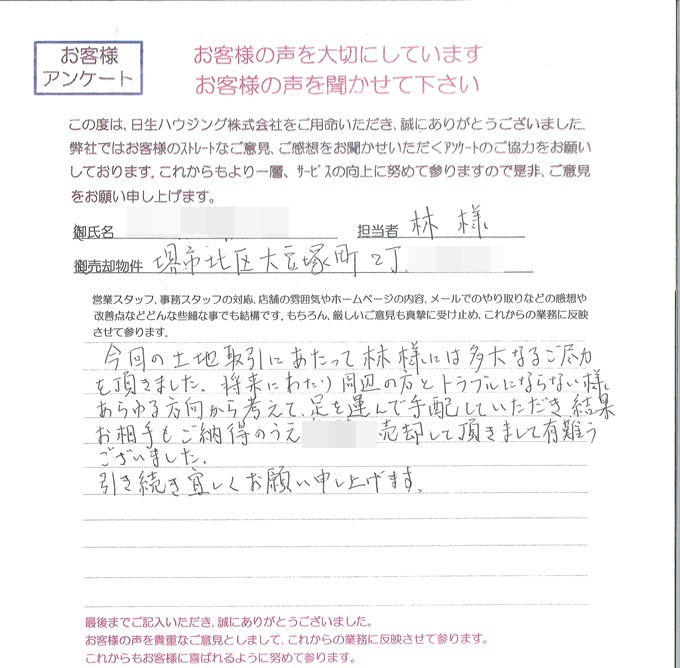 お客様
アンケート
お客様の声を大切にしています
お客様の声を聞かせて下さい
この度は、日生ハウジング株式会社をご用命いただき、誠にありがとうございました。
弊社ではお客様のストレートなご意見、ご感想をお聞かせいただくアンケートのご協力をお願い
しております。これからもより一層、サービスの向上に努めて参りますので是非、ご意見
をお願い申し上げます。
御氏名
担当者 林 様
御売却物件 堺市北区大豆塚町2丁
営業スタッフ、事務スタッフの対応、店舗の雰囲気やホームページの内容、メールでのやり取りなどの感想や
改善点などどんな些細な事でも結構です。もちろん、厳しいご意見も真摯に受け止め、これからの業務に反映
させて参ります。
今回の土地取引にあたって林様には多大なるご尽力
を頂きました。将来にわたり周辺の方とトラブルにならない様
あらゆる方向から考えて、足を運んで手配していただき結果
お相手もご納得のうえ 売却して頂きまして有難う
ございました。
引き続き宜しくお願い申し上げます。
最後までご記入いただき、誠にありがとうございました。
お客様の声を貴重なご意見としまして、これからの業務に反映させて参ります。
これからもお客様に喜ばれるように努めて参ります。